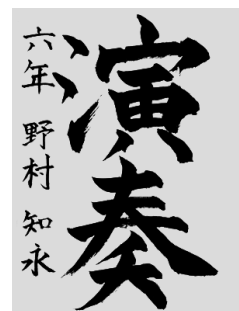 演奏
六年 野村 知永